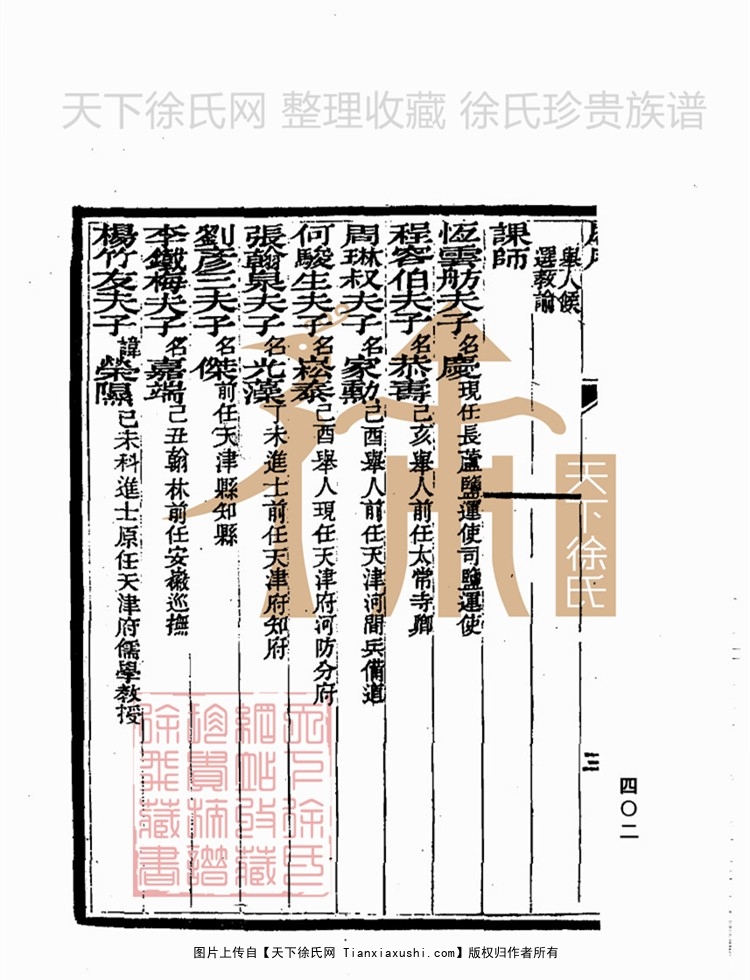 天下徐氏网 整理收藏 徐氏珍贵族谱
舉人候
選教諭
課師
恆雲舫夫子名慶現任長蘆鹽運使司鹽運使
程容伯夫子名恭壽己亥舉人前任太常寺卿
周琳叔夫子名家勳己酉舉人前任天津河間兵備道
何駿生夫子名崧泰己酉舉人現任天津府河防分府
張翰泉夫子名光藻丁未進士前任天津府知府
劉彥三夫子名傑前任天津縣知縣
李鐵梅夫子名嘉端己丑翰林前任安徽巡撫
楊竹友夫子諱榮隰己未科進士原任天津府儒學教授
三
四〇二
天下徐氏
天下徐氏
網站收藏
珍貴族譜
徐氏藏書
图片上传自【天下徐氏网 Tianxiaxushi.com】版权归作者所有